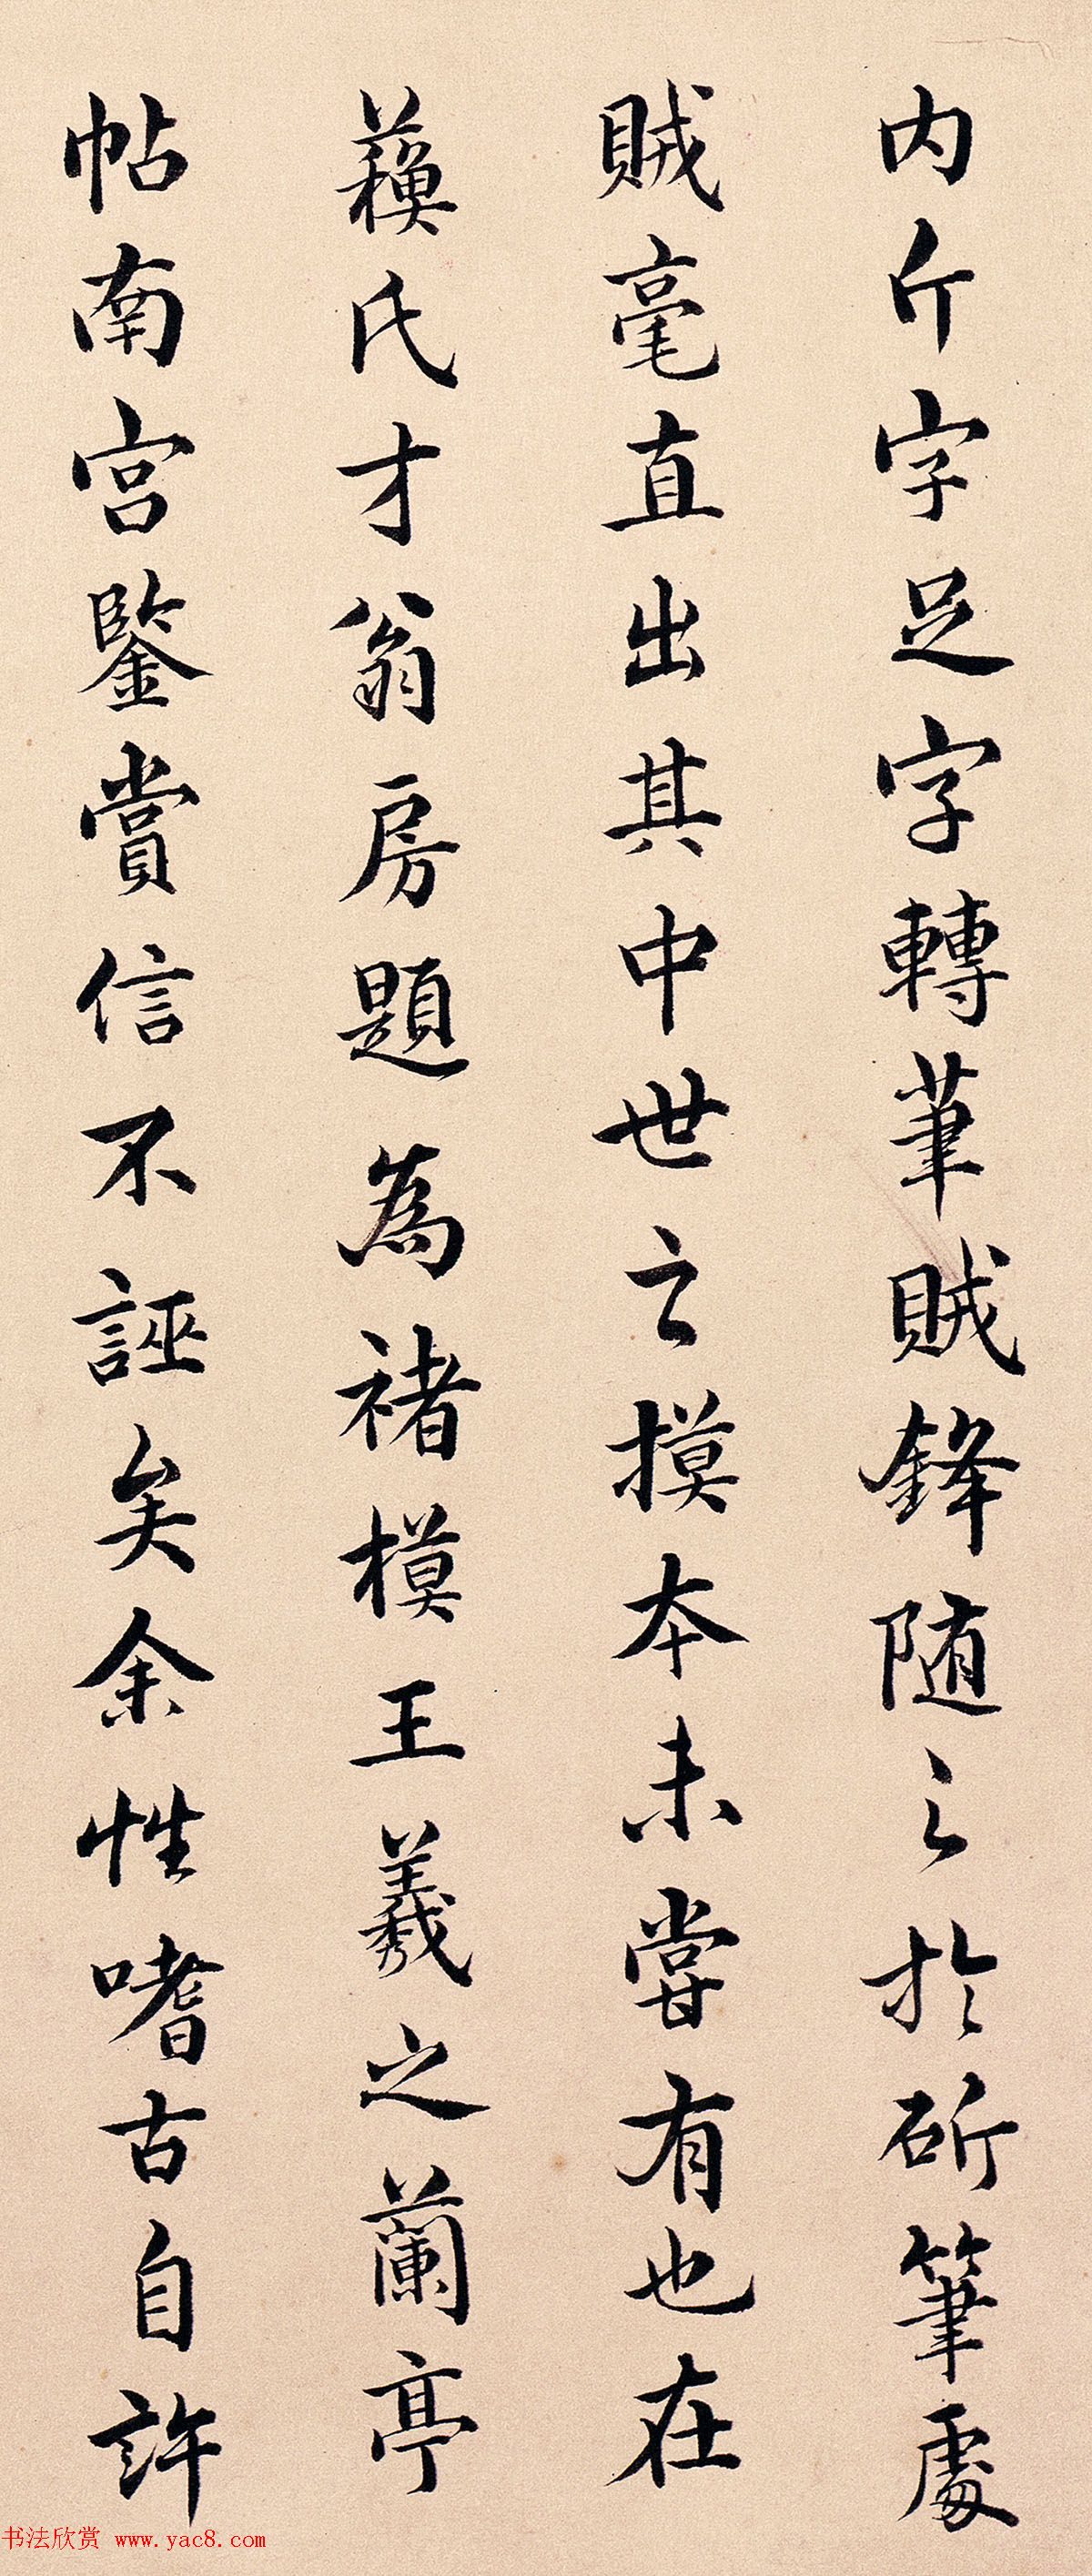 内斤字足字轉筆賊鋒随之於斫筆處
賊毫直出其中世之摸本未嘗有也在
蘓氏才翁房題為褚模王羲之蘭亭
帖南宮鑒賞信不誣矣余性嗜古自許
书法欣赏 www.yac8.com